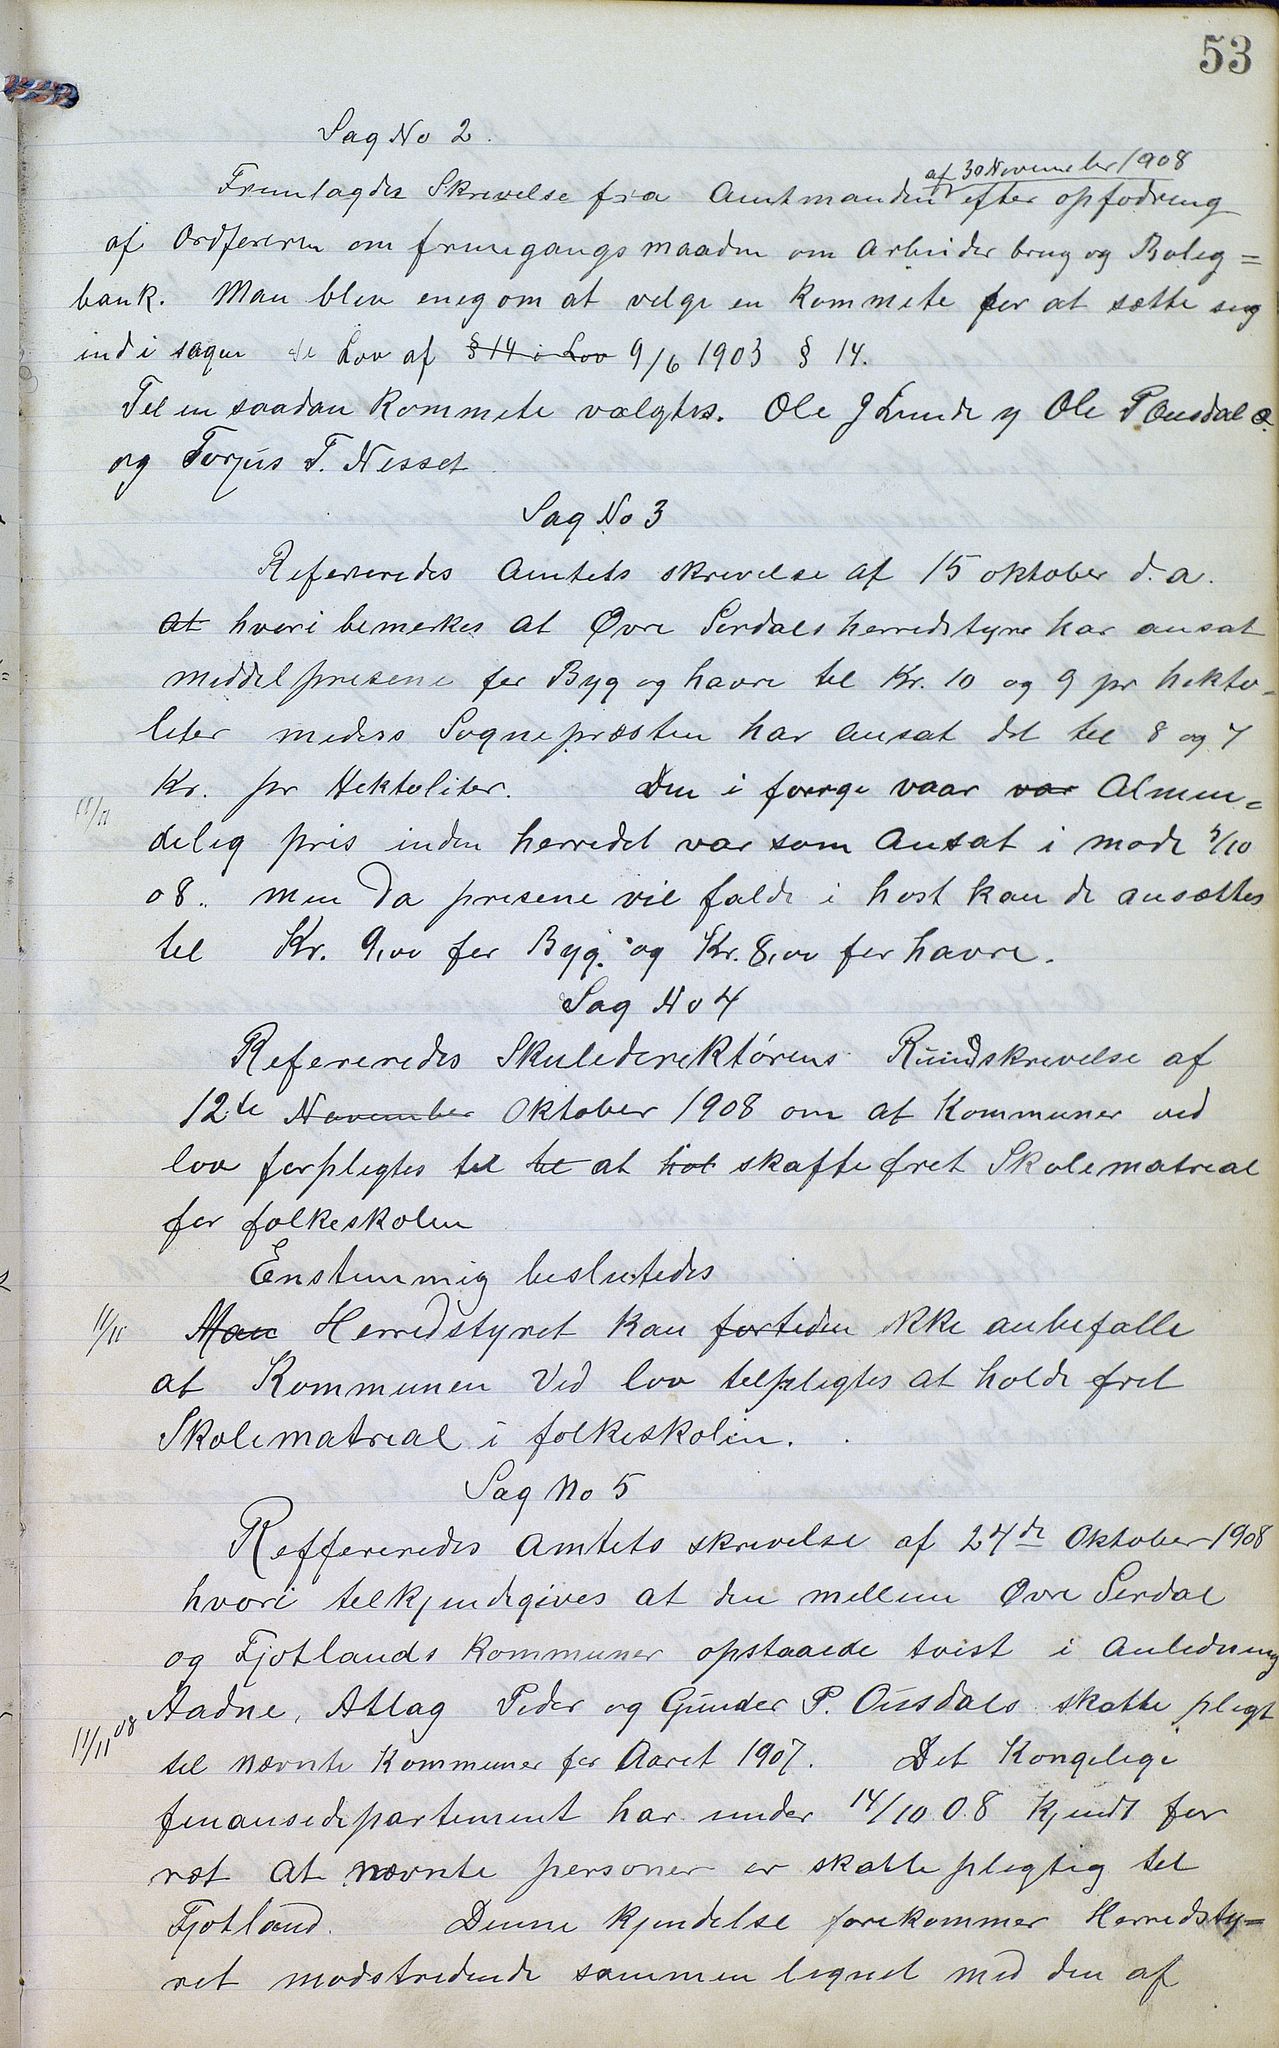 53
Sag No 2.
af 30 November 1908
Fremlagdes Skrivelse fra Amtmanden efter opfodring
af Ordføreren om fremgangsmaaden om Arbeider brug og Bolig=
bank. Man blev enig om at velge en Kommite for at sætte sig
ind i sagen Lov af § 14 i Lov 9/6 1903 § 14.
Til en saadan Kommete vælgtes. Ole J Lunde y Ole P Ousdal
og Torjus T. Nesset
Sag No 3
Refereredes Amtets skrivelse af 15 oktober d.a.
at hvori bemerkes at Øvre Serdals herredstyre har ansat
middelprisene for Byg og havre til Kr. 10 og 9 pr hekto-
liter medens Sognepræsten har ansat det til 8 og 7
Kr. pr Hektoliter. Den i forrge vaar var Almin=
11/11
delig pris inden herredet var som Ansat i møde 5/10
08. men da prisene vil falde i høst kan de ansættes
til Kr. 9,00 for Byg. og Kr. 8,00 for havre.
Sag No 4
Refereredes Skuledirektørens Rundskrivelse af
12te November Oktober 1908 om at Kommuner ved
lov forpligtes til til at hol skaffe frit Skolematreal
for folkeskolen
Enstemmig besluttedes
11/11 Man Herredstyret kan fortiden ikke anbefalle
at Kommunen Ved lov tilpligtes at holde frit
Skolematreal i folkeskolen.
Sag No 5
Reffereredes Amtets skrivelse af 24de Oktober 1908
hvori tilkjendegives at den mellem Øvre Serdal
og Fjotlands Kommuner opstaaede tvist i Anledning
Aadne, Atlag Peder og Gunder P. Ousdals skatte pligt
11/11 08
til nævnte Kommuner for Aaret 1907. Det Kongelige
finansedepartement har under 14/10 08 kjendt for
ret at nævnte personer er skatte pligtig til
Fjotland. Denne kjendelse forekommer Herredsty=
ret modstridende sammen lignet med den af